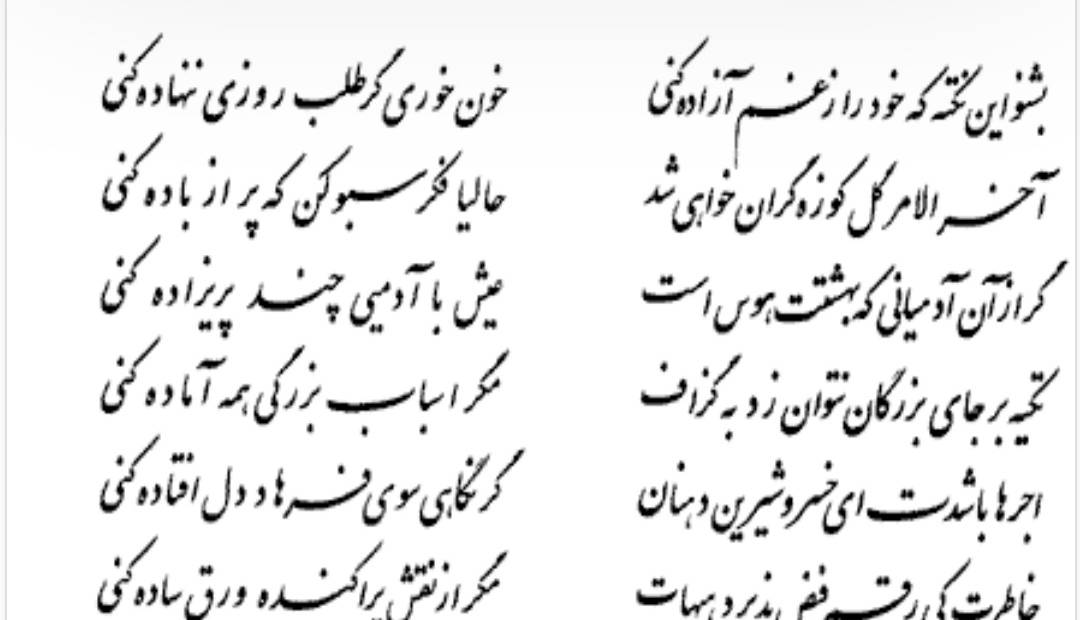 بشنو این نکته که خود را ز غم آزاده کنی
خون خوری گر طلب روزی ننهاده کنی
آخر الامر گل کوزه گران خواهی شد
حالیا فکر سبو کن که پر از باده کنی
گر از آن آدمیانی که بهشتت هوس است
عیش با آدمیی چند پریزاده کنی
تکیه بر جای بزرگان نتوان زد به گزاف
مگر اسباب بزرگی همه آماده کنی
اجرها باشدت ای خسرو شیرین دهنان
گر نگاهی سوی فرهاد دل افتاده کنی
خاطرت کی رقم فیض پذیرد هیهات
مگر از نقش پراکنده ورق ساده کنی